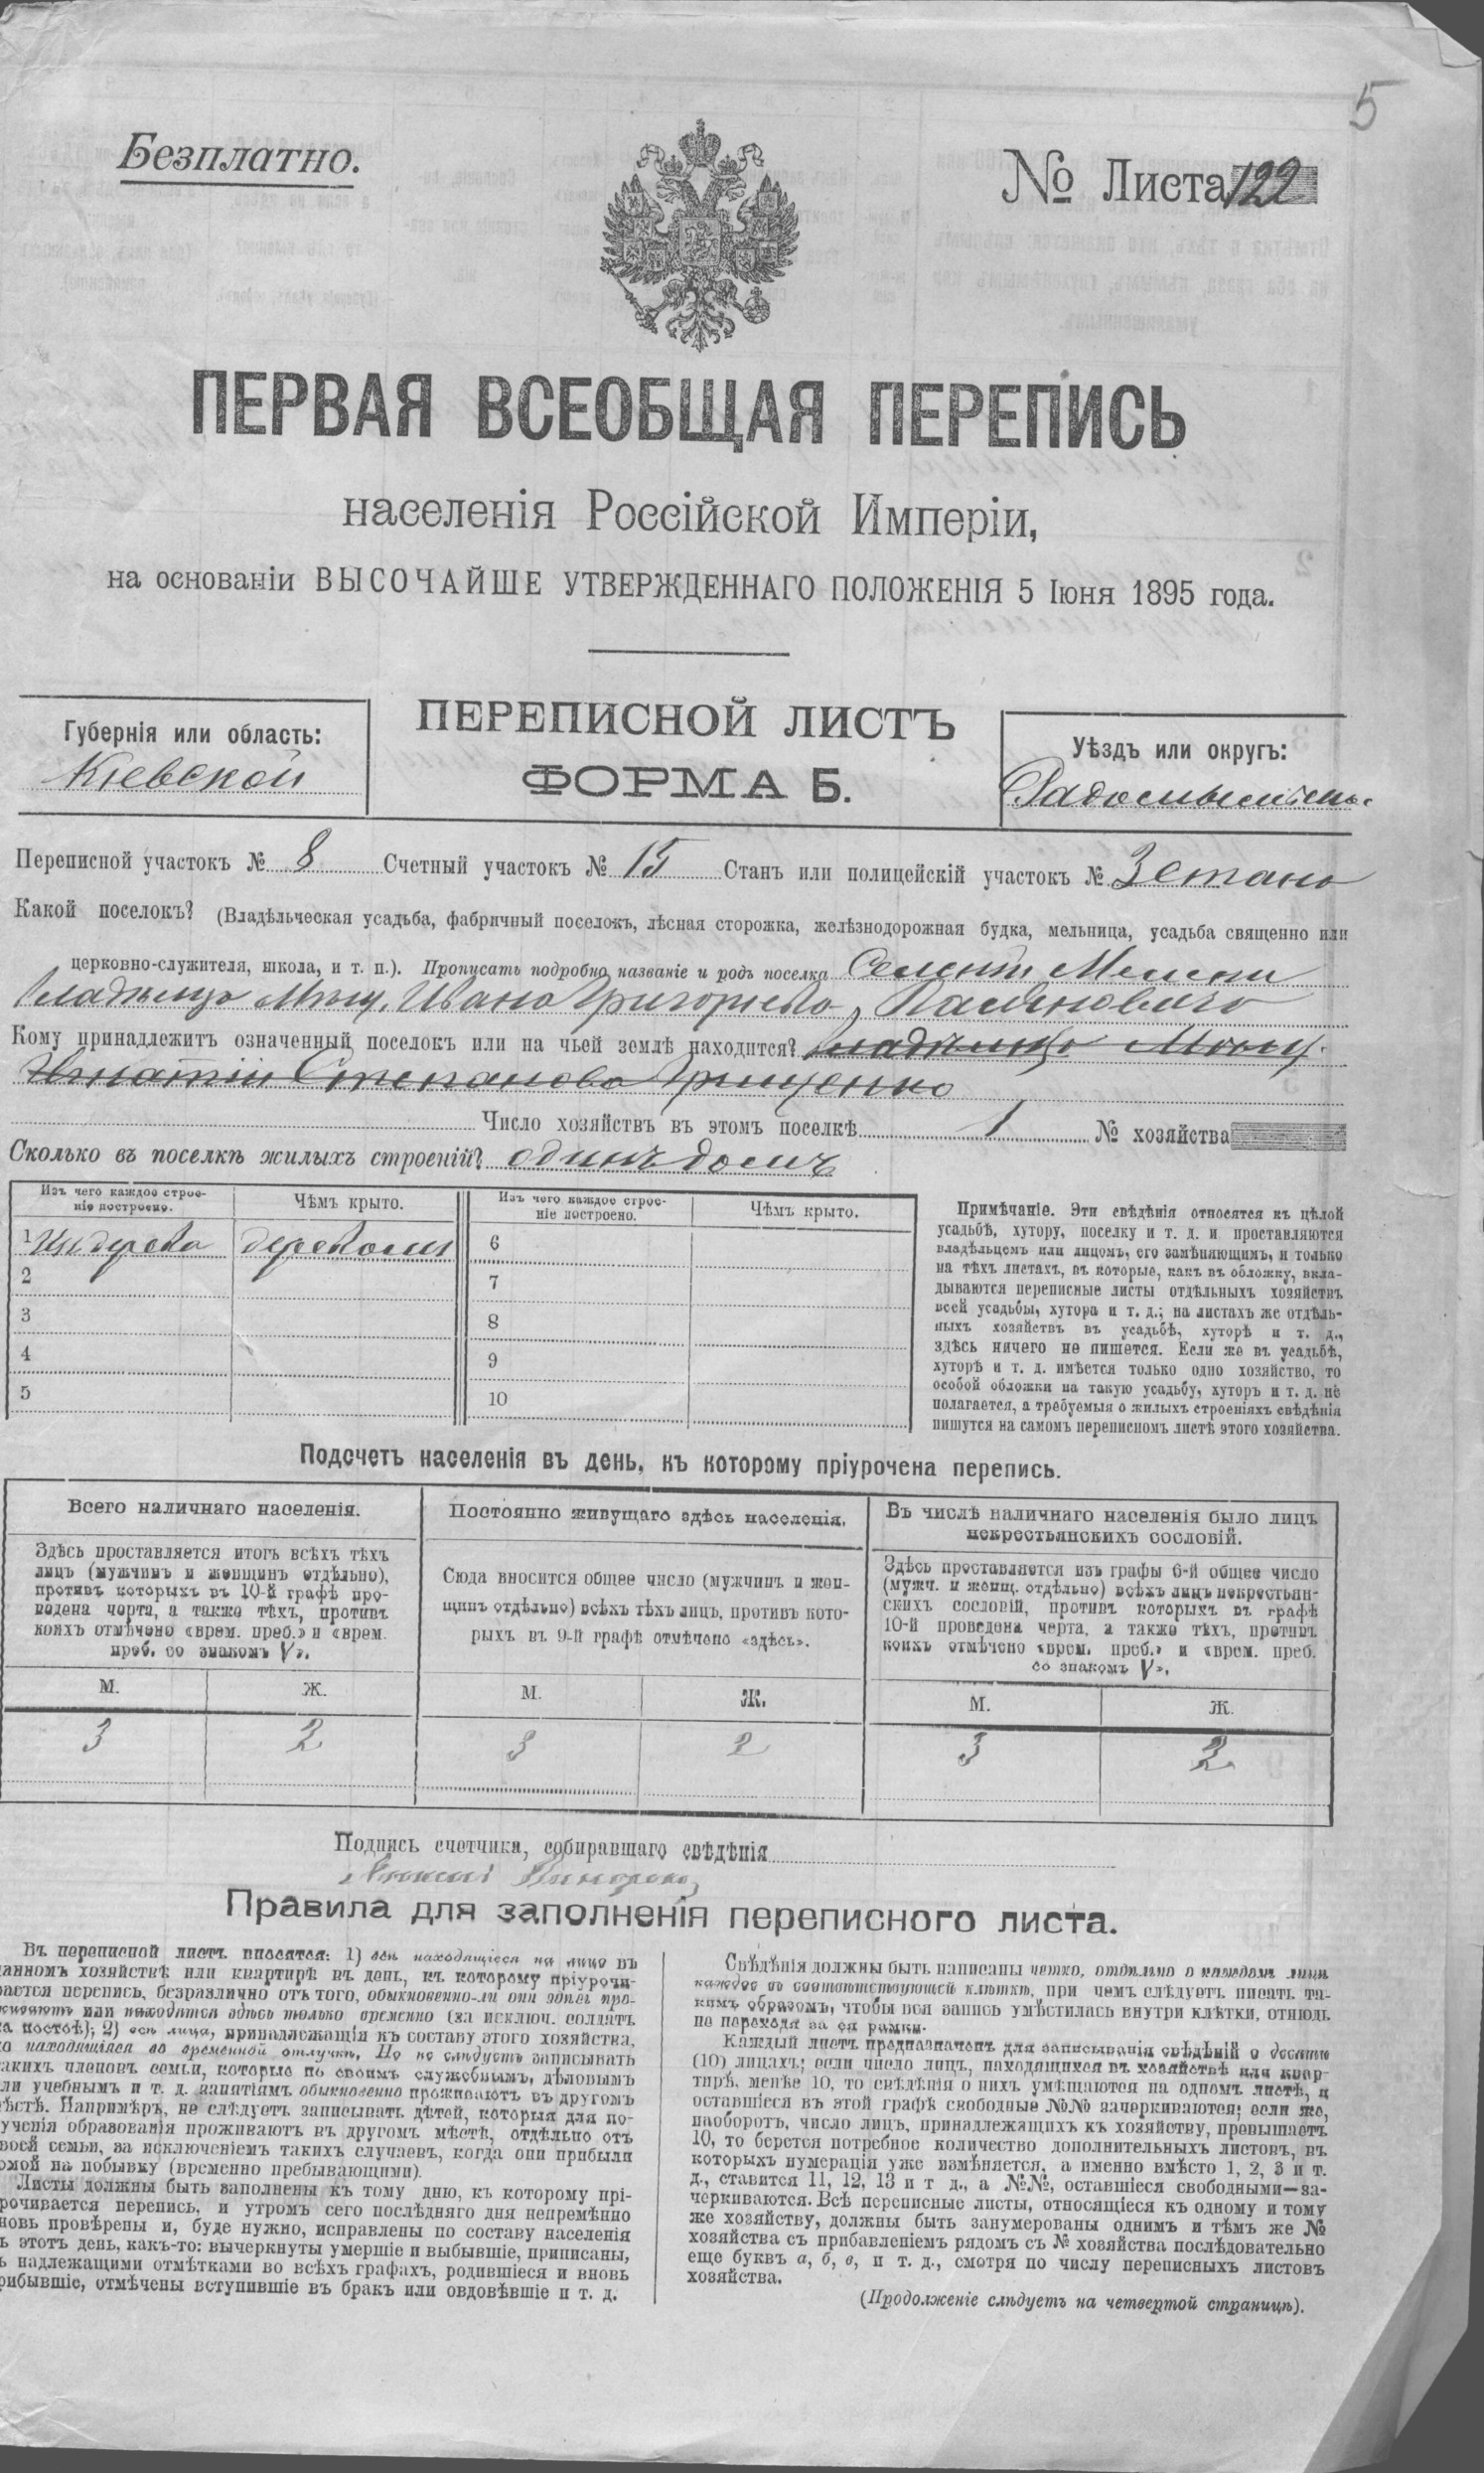 5
Безплатно.
№ Листа 122
ПЕРВАЯ ВСЕОБЩАЯ ПЕРЕПИСЬ
населенія Россійской Имперіи,
на основаніи ВЫСОЧАЙШЕ УТВЕРЖДЕННАГО ПОЛОЖЕНІЯ 5 Іюня 1895 года.
Губернія или область:
Кіевской
ПЕРЕПИСНОЙ ЛИСТЪ
ФОРМА Б.
Уѣздъ или округъ:
Переписной участокъ № 8 Счетный участокъ № 15 Станъ или полицейскій участокъ № 3 стана
Какой поселокъ? (Владѣльческая усадьба, фабричный поселокъ, лѣсная сторожка, желѣзнодорожная будка, мельница, усадьба священно или
церковно-служителя, школа, и т. п.). Прописать подробно названіе и родъ поселка
Ивана Григорьева
Кому принадлежитъ означенный поселокъ или на чьей землѣ находится?
Игнатій Степановъ Грищенко
Число хозяйствъ въ этомъ поселкѣ 1 № хозяйства
Сколько въ поселкѣ жилыхъ строеній? одинъ домъ
Изъ чего каждое строе-
ніе построено.
Чѣмъ крыто.
Изъ чего каждое строе-
ніе построено.
Чѣмъ крыто.
1 Изъ дерева деревомъ 6
2 7
3 8
4 9
5 10
Примѣчаніе. Эти свѣдѣнія относятся къ цѣлой
усадьбѣ, хутору, поселку и т. д. и проставляются
владѣльцемъ или лицомъ, его замѣняющимъ, и только
на тѣхъ листахъ, въ которые, какъ въ обложку, вкла-
дываются переписные листы отдѣльныхъ хозяйствъ
всей усадьбы, хутора и т. д.; на листахъ же отдѣль-
ныхъ хозяйствъ въ усадьбѣ, хуторѣ и т. д.,
здѣсь ничего не пишется. Если же въ усадьбѣ,
хуторѣ и т. д. имѣется только одно хозяйство, то
особой обложки на такую усадьбу, хуторъ и т. д. не
полагается, а требуемыя о жилыхъ строеніяхъ свѣдѣнія
пишутся на самомъ переписномъ листѣ этого хозяйства.
Подсчетъ населенія въ день, къ которому пріурочена перепись.
Всего наличнаго населенія.
Здѣсь проставляется итогъ всѣхъ тѣхъ
лицъ (мужчинъ и женщинъ отдѣльно),
противъ которыхъ въ 10-й графѣ про-
ведена черта, а также тѣхъ, противъ
коихъ отмѣчено «врем. преб.» и «врем.
преб. со знакомъ V».
М. Ж.
3 2
Постоянно живущаго здѣсь населенія.
Сюда вносится общее число (мужчинъ и жен-
щинъ отдѣльно) всѣхъ тѣхъ лицъ, противъ кото-
рыхъ въ 9-й графѣ отмѣчено «здѣсь».
М. Ж.
3 2
Въ числѣ наличнаго населенія было лицъ
некрестьянскихъ сословій.
Здѣсь проставляется изъ графы 6-й общее число
(мужч. и женщ. отдѣльно) всѣхъ лицъ некрестьян-
скихъ сословій, противъ которыхъ въ графѣ
10-й проведена черта, а также тѣхъ, противъ
коихъ отмѣчено «врем. преб.» и «врем. преб.
со знакомъ V».
М. Ж.
3 2
Подпись счетчика, собиравшаго свѣдѣнія
Правила для заполненія переписного листа.
Въ переписной листъ вносятся: 1) всѣ находящіеся на лицо въ
данномъ хозяйствѣ или квартирѣ въ день, къ которому пріурочи-
вается перепись, безразлично отъ того, обыкновенно-ли они здѣсь про-
живаютъ или находятся здѣсь только временно (за исключ. солдатъ
на постоѣ); 2) всѣ лица, принадлежащія къ составу этого хозяйства,
но находящіяся во временной отлучкѣ. Но не слѣдуетъ записывать
такихъ членовъ семьи, которые по своимъ служебнымъ, дѣловымъ
или учебнымъ и т. д. занятіямъ обыкновенно проживаютъ въ другомъ
мѣстѣ. Напримѣръ, не слѣдуетъ записывать дѣтей, которыя для по-
лученія образованія проживаютъ въ другомъ мѣстѣ, отдѣльно отъ
своей семьи, за исключеніемъ такихъ случаевъ, когда они прибыли
домой на побывку (временно пребывающими).
Листы должны быть заполнены къ тому дню, къ которому прі-
урочивается перепись, и утромъ сего послѣдняго дня непремѣнно
вновь провѣрены и, буде нужно, исправлены по составу населенія
въ этотъ день, какъ-то: вычеркнуты умершіе и выбывшіе, приписаны,
съ надлежащими отмѣтками во всѣхъ графахъ, родившіеся и вновь
прибывшіе, отмѣчены вступившіе въ бракъ или овдовѣвшіе и т. д.
Свѣдѣнія должны быть написаны четко, отдѣльно о каждомъ лицѣ
каждое въ соотвѣтствующей клѣткѣ, при чемъ слѣдуетъ писать та-
кимъ образомъ, чтобы вся запись умѣстилась внутри клѣтки, отнюдь
не переходя за ея рамки.
Каждый листъ предназначенъ для записыванія свѣдѣній о десяти
(10) лицахъ; если число лицъ, находящихся въ хозяйствѣ или квар-
тирѣ, менѣе 10, то свѣдѣнія о нихъ умѣщаются на одномъ листѣ, и
оставшіеся въ этой графѣ свободные №№ зачеркиваются; если же,
наоборотъ, число лицъ, принадлежащихъ къ хозяйству, превышаетъ
10, то берется потребное количество дополнительныхъ листовъ, въ
которыхъ нумерація уже измѣняется, а именно вмѣсто 1, 2, 3 и т.
д., ставится 11, 12, 13 и т д., а №№, оставшіеся свободными—за-
черкиваются. Всѣ переписные листы, относящіеся къ одному и тому
же хозяйству, должны быть занумерованы однимъ и тѣмъ же №
хозяйства съ прибавленіемъ рядомъ съ № хозяйства послѣдовательно
еще буквъ а, б, в, и т. д., смотря по числу переписныхъ листовъ
хозяйства.
(Продолженіе слѣдуетъ на четвертой страницѣ).